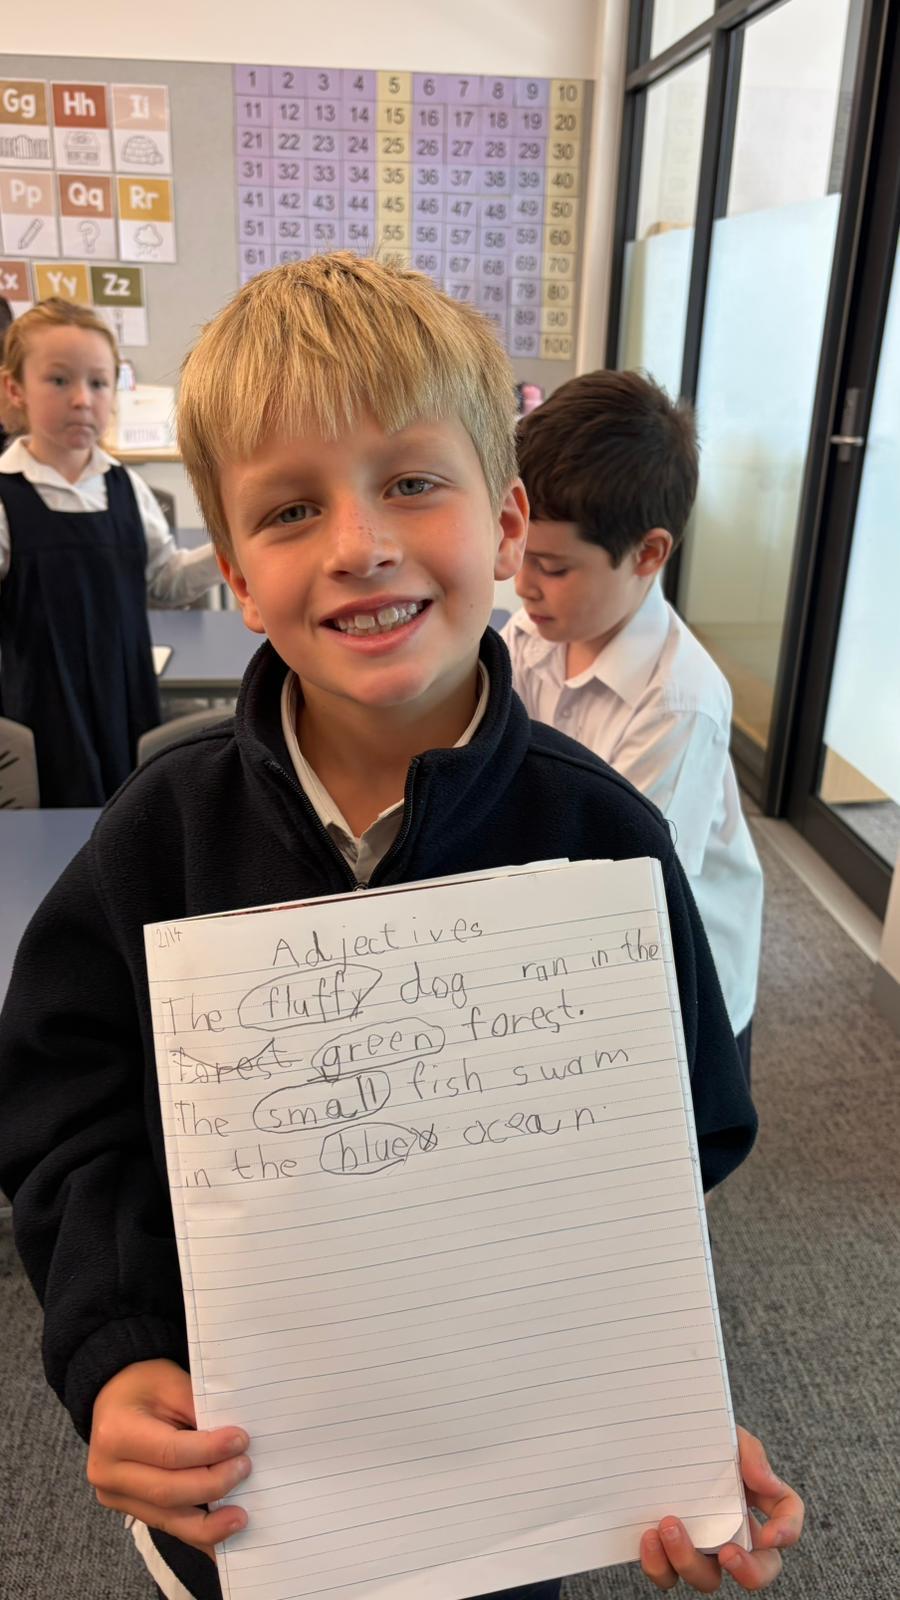 Gg Hh Ii
Pp Qq Rr
Xx Yy Zz
1 2 3 4 5 6 7 8 9 10
11 12 13 14 15 16 17 18 19 20
21 22 23 24 25 26 27 28 29 30
31 32 33 34 35 36 37 38 39 40
41 42 43 44 45 46 47 48 49 50
51 52 53 54 55 56 57 58 59 60
61 62 66 67 68 69 70
77 78 79 80
89 90
99 100
WRITING
21/4
Adjectives
The fluffy dog ran in the
forest green forest.
The small fish swam
in the blue ocean.